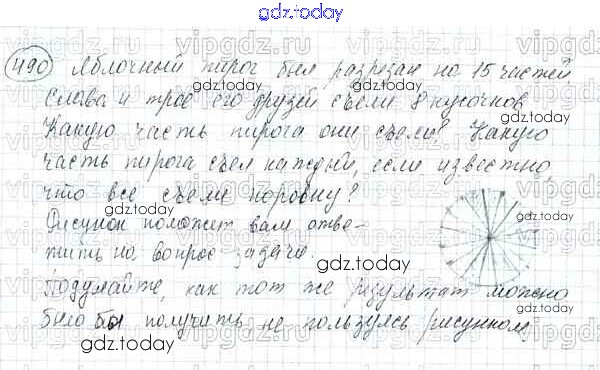 gdz.today
490 Яблочный пирог был разрезан на 15 частей
Слава и трое его друзей съели 8 кусочков
Какую часть пирога они съели? Какую
часть пирога съел каждый, если известно,
что все съели поровну?
Рисунок поможет вам отве-
тить на вопрос задачи.
Подумайте, как тот же результат можно
было бы получить не пользуясь рисунком
gdz.today